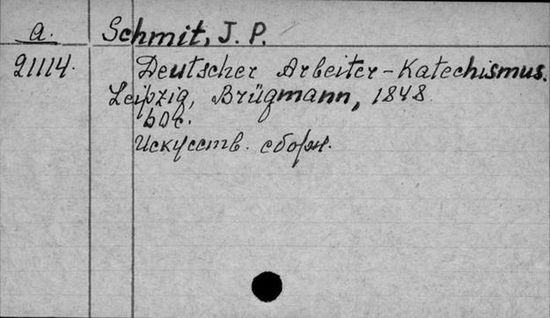 a. Schmit, J. P.
21114. Deutscher Arbeiter-Katechismus.
Leipzig, Brügmann, 1848.
60 с.
Искусств. сборн.